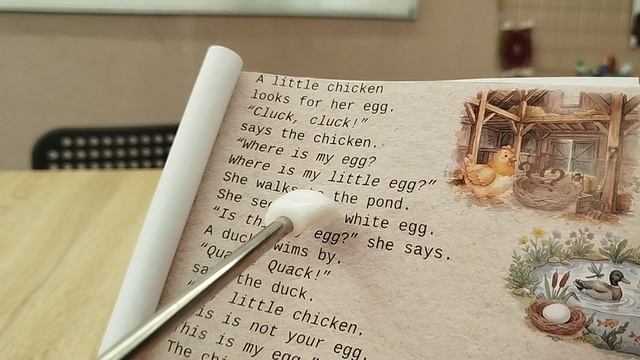 A little chicken
looks for her egg.
"Cluck, cluck!"
says the chicken.
"Where is my egg?
Where is my little egg?"
She walks the pond.
She white egg.
"Is egg?" she says.
A duck swims by.
Quack!"
the duck.
little chicken.
is is not your egg.
This is my egg."
The